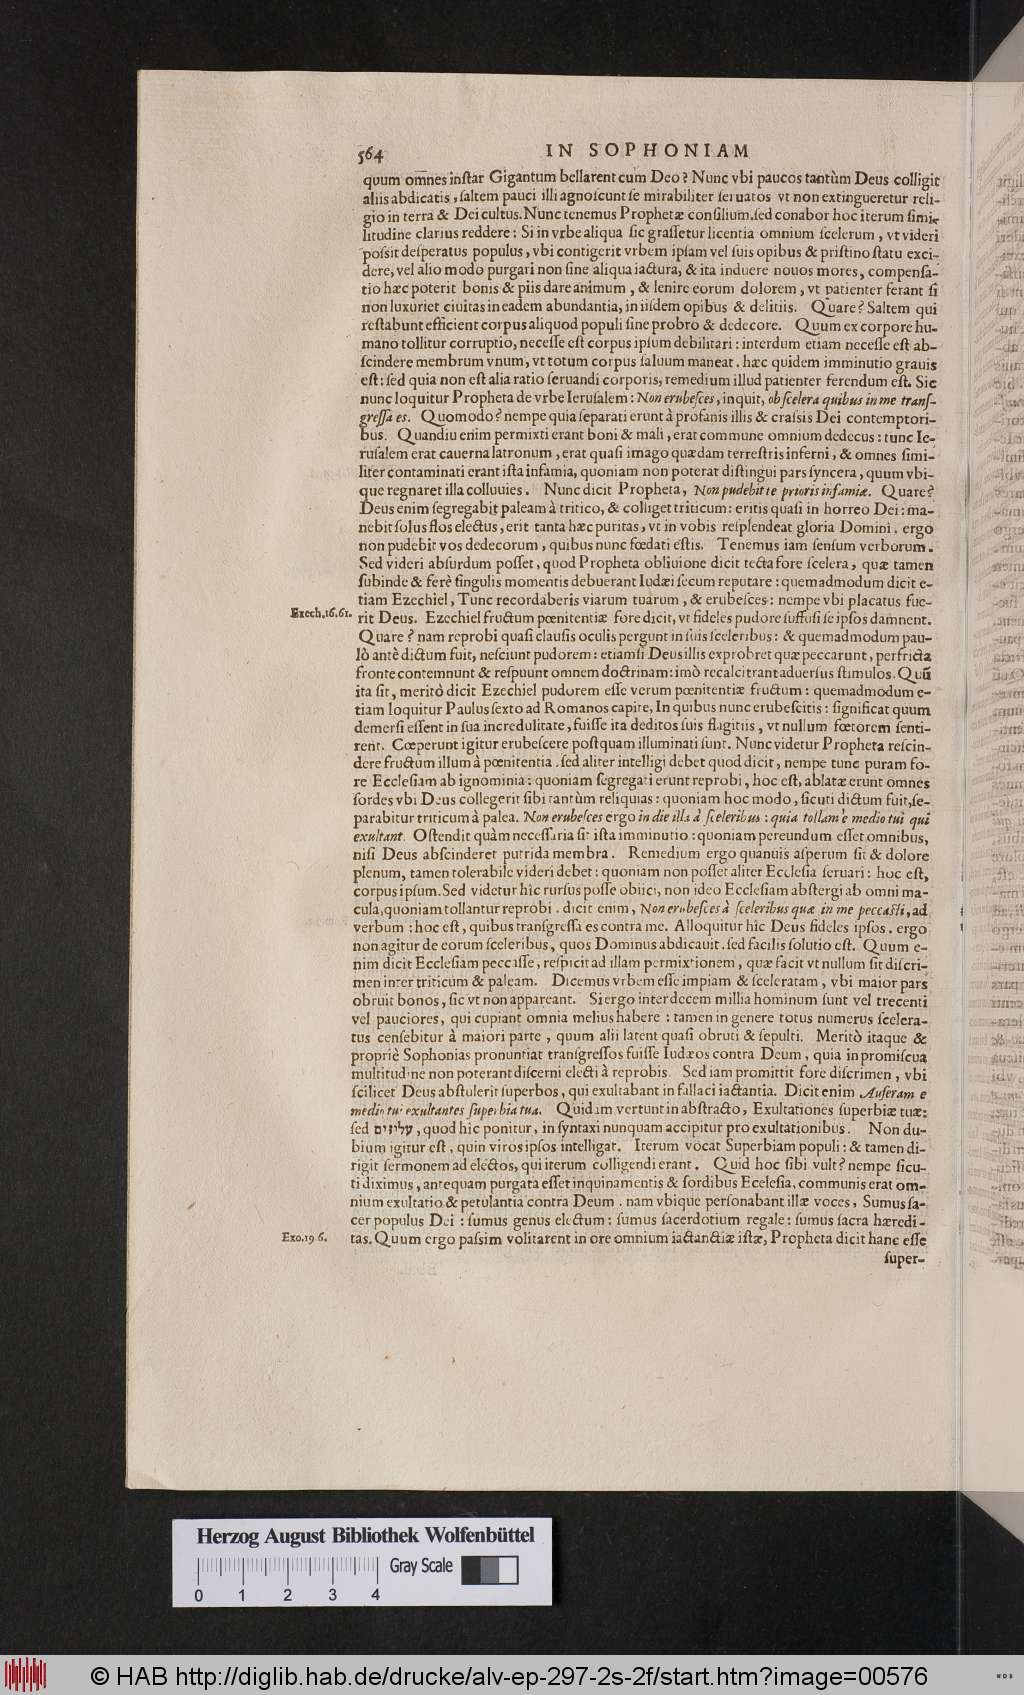 564 IN SOPHONIAM
quum om̄nes inſtar Gigantum bellarent cum Deo? Nunc vbi paucos tantùm Deus colligit
aliis abdicatis, ſaltem pauci illi agnoſcunt ſe mirabiliter ſeruatos vt non extingueretur reli-
gio in terra & Dei cultus. Nunc tenemus Prophetæ conſilium. ſed conabor hoc iterum ſimi-
litudine clarius reddere: Si in vrbe aliqua ſic graſſetur licentia omnium ſcelerum, vt videri
poſsit deſperatus populus, vbi contigerit vrbem ipſam vel ſuis opibus & priſtino ſtatu exci-
dere, vel alio modo purgari non ſine aliqua iactura, & ita induere nouos mores, compenſa-
tio hæc poterit bonis & piis dare animum, & lenire eorum dolorem, vt patienter ferant ſi
non luxuriet ciuitas in eadem abundantia, in iiſdem opibus & delitiis. Quare? Saltem qui
reſtabunt efficient corpus aliquod populi ſine probro & dedecore. Quum ex corpore hu-
mano tollitur corruptio, neceſſe eſt corpus ipſum debilitari: interdum etiam neceſſe eſt ab-
ſcindere membrum vnum, vt totum corpus ſaluum maneat. hæc quidem imminutio grauis
eſt: ſed quia non eſt alia ratio ſeruandi corporis, remedium illud patienter ferendum eſt. Sic
nunc loquitur Propheta de vrbe Ieruſalem: Non erubeſces, inquit, ob ſcelera quibus in me tranſ-
greſſa es. Quomodo? nempe quia ſeparati erunt à profanis illis & craſsis Dei contemptori-
bus. Quandiu enim permixti erant boni & mali, erat commune omnium dedecus: tunc Ie-
ruſalem erat cauerna latronum, erat quaſi imago quædam terreſtris inferni, & omnes ſimi-
liter contaminati erant iſta infamia, quoniam non poterat diſtingui pars ſyncera, quum vbi-
que regnaret illa colluuies. Nunc dicit Propheta, Non pudebit te prioris infamiæ. Quare?
Deus enim ſegregabit paleam à tritico, & colliget triticum: eritis quaſi in horreo Dei: ma-
nebit ſolus flos electus, erit tanta hæc puritas, vt in vobis reſplendeat gloria Domini. ergo
non pudebit vos dedecorum, quibus nunc fœdati eſtis. Tenemus iam ſenſum verborum.
Sed videri abſurdum poſſet, quod Propheta obliuione dicit tecta fore ſcelera, quæ tamen
ſubinde & ferè ſingulis momentis debuerant Iudæi ſecum reputare: quemadmodum dicit e-
tiam Ezechiel, Tunc recordaberis viarum tuarum, & erubeſces: nempe vbi placatus fue-
Ezech.16.61. rit Deus. Ezechiel fructum pœnitentiæ fore dicit, vt fideles pudore ſuffuſi ſe ipſos damnent.
Quare? nam reprobi quaſi clauſis oculis pergunt in ſuis ſceleribus: & quemadmodum pau-
lò antè dictum fuit, neſciunt pudorem: etiamſi Deus illis exprobret quæ peccarunt, perfricta
fronte contemnunt & reſpuunt omnem doctrinam: imò recalcitrant aduerſus ſtimulos. Quū
ita ſit, meritò dicit Ezechiel pudorem eſſe verum pœnitentiæ fructum: quemadmodum e-
tiam loquitur Paulus ſexto ad Romanos capite, In quibus nunc erubeſcitis: ſignificat quum
demerſi eſſent in ſua incredulitate, fuiſſe ita deditos ſuis flagitiis, vt nullum fœtorem ſenti-
rent. Cœperunt igitur erubeſcere poſtquam illuminati ſunt. Nunc videtur Propheta reſcin-
dere fructum illum à pœnitentia. ſed aliter intelligi debet quod dicit, nempe tunc puram fo-
re Eccleſiam ab ignominia: quoniam ſegregati erunt reprobi, hoc eſt, ablatæ erunt omnes
ſordes vbi Deus collegerit ſibi tantùm reliquias: quoniam hoc modo, ſicuti dictum fuit, ſe-
parabitur triticum à palea. Non erubeſces ergo in die illa à ſceleribus: quia tollam è medio tui qui
exultant. Oſtendit quàm neceſſaria ſit iſta imminutio: quoniam pereundum eſſet omnibus,
niſi Deus abſcinderet putrida membra. Remedium ergo quanuis aſperum ſit & dolore
plenum, tamen tolerabile videri debet: quoniam non poſſet aliter Eccleſia ſeruari: hoc eſt,
corpus ipſum. Sed videtur hîc rurſus poſſe obiici, non ideo Eccleſiam abſtergi ab omni ma-
cula, quoniam tollantur reprobi. dicit enim, Non erubeſces à ſceleribus quæ in me peccaſti, ad
verbum: hoc eſt, quibus tranſgreſſa es contra me. Alloquitur hîc Deus fideles ipſos. ergo
non agitur de eorum ſceleribus, quos Dominus abdicauit. ſed facilis ſolutio eſt. Quum e-
nim dicit Eccleſiam peccaſſe, reſpicit ad illam permixtionem, quæ facit vt nullum ſit diſcri-
men inter triticum & paleam. Dicemus vrbem eſſe impiam & ſceleratam, vbi maior pars
obruit bonos, ſic vt non appareant. Si ergo inter decem millia hominum ſunt vel trecenti
vel pauciores, qui cupiant omnia melius habere: tamen in genere totus numerus ſcelera-
tus cenſebitur à maiori parte, quum alii latent quaſi obruti & ſepulti. Meritò itaque &
propriè Sophonias pronuntiat tranſgreſſos fuiſſe Iudæos contra Deum, quia in promiſcua
multitudine non poterant diſcerni electi à reprobis. Sed iam promittit fore diſcrimen, vbi
ſcilicet Deus abſtulerit ſuperbos, qui exultabant in fallaci iactantia. Dicit enim Auferam e
medio tui exultantes ſuperbia tua. Quidam vertunt in abſtracto, Exultationes ſuperbiæ tuæ:
ſed עליזים, quod hic ponitur, in ſyntaxi nunquam accipitur pro exultationibus. Non du-
bium igitur eſt, quin viros ipſos intelligat. Iterum vocat Superbiam populi: & tamen di-
rigit ſermonem ad electos, qui iterum colligendi erant. Quid hoc ſibi vult? nempe ſicu-
ti diximus, antequam purgata eſſet inquinamentis & ſordibus Eccleſia, communis erat om-
nium exultatio & petulantia contra Deum. nam vbique perſonabant illæ voces, Sumus ſa-
cer populus Dei: ſumus genus electum: ſumus ſacerdotium regale: ſumus ſacra hæredi-
Exo.19 6. tas. Quum ergo paſsim volitarent in ore omnium iactantiæ iſtæ, Propheta dicit hanc eſſe
ſuper-
Herzog August Bibliothek Wolfenbüttel
Gray Scale
0 1 2 3 4
© HAB http://diglib.hab.de/drucke/alv-ep-297-2s-2f/start.htm?image=00576